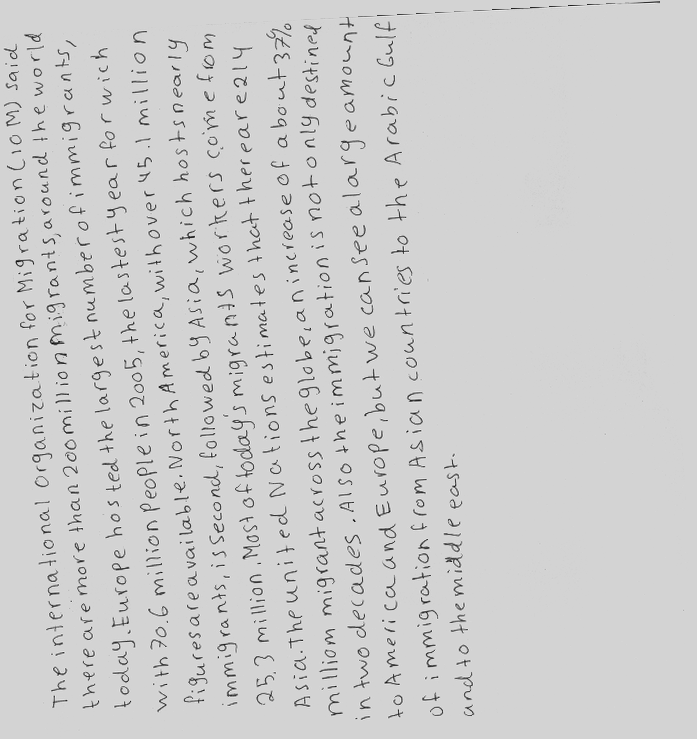 The international Organization for Migration (IOM) said
there are more than 200 million migrants, around the world
today. Europe hosted the largest number of immigrants,
with 70.6 million People in 2005, the lastest year for wich
figures are available. North America, with over 45.1 million
immigrants, is second, followed by Asia, which hosts nearly
25.3 million. Most of today's migrants workers come from
Asia. The united Nations estimates that there are 214
milliom migrant across the globe, an increase of about 37%
in two decades. Also the immigration is not only destined
to America and Europe, but we can see a large amount
of immigration from Asian countries to the Arabic Gulf
and to the middle east.